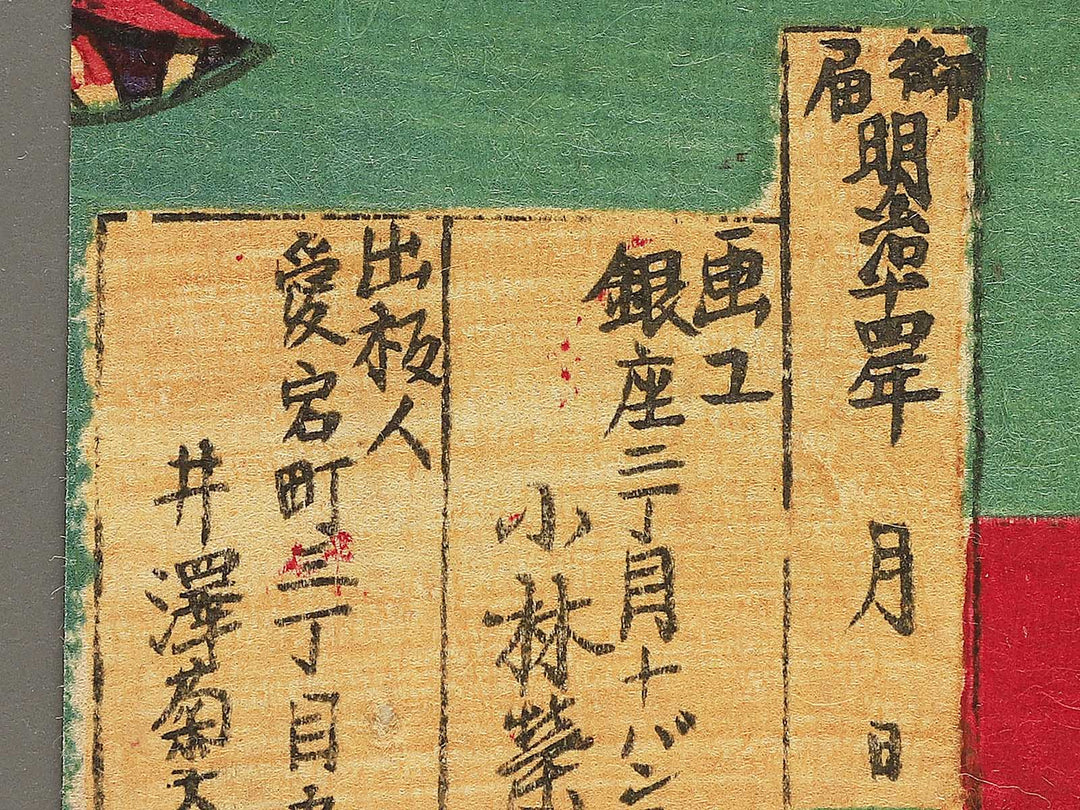 御届
明治四年 月 日
画工
銀座三丁目十バン
小林榮
出板人
愛宕町三丁目
井澤菊